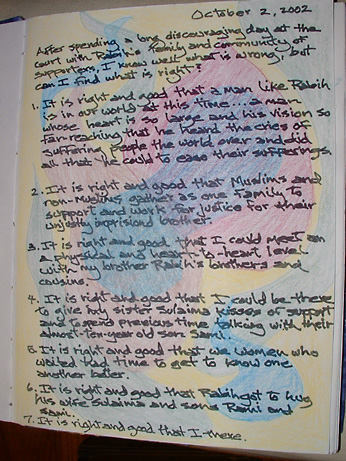 October 2, 2002
After spending a long discouraging day at the
court with Rabih's family and community of
supporters, I know well what is wrong, but
can I find what is right?
1. It is right and good that a man like Rabih
is in our world at this time... a man
whose heart is so large and his vision so
far-reaching that he heard the cries of
suffering people the world over and did
all that he could to ease their sufferings.
2. It is right and good that Muslims and
non-Muslims gather as one family to
support and work for justice for their
unjustly imprisoned brother.
3. It is right and good that I could meet on
a physical and heart-to-heart level
with my brother Rabih's brothers and
cousins.
4. It is right and good that I could be there
to give my sister Sulaima kisses of support
and to spend previous time talking with their
almost-ten-year old son Sami.
5. It is right and good that we women who
waited had time to get to know one
another better.
6. It is right and good that Rabih got to hug
his wife Sulaima and sons Rami and
Sami.
7. It is right and good that I there.